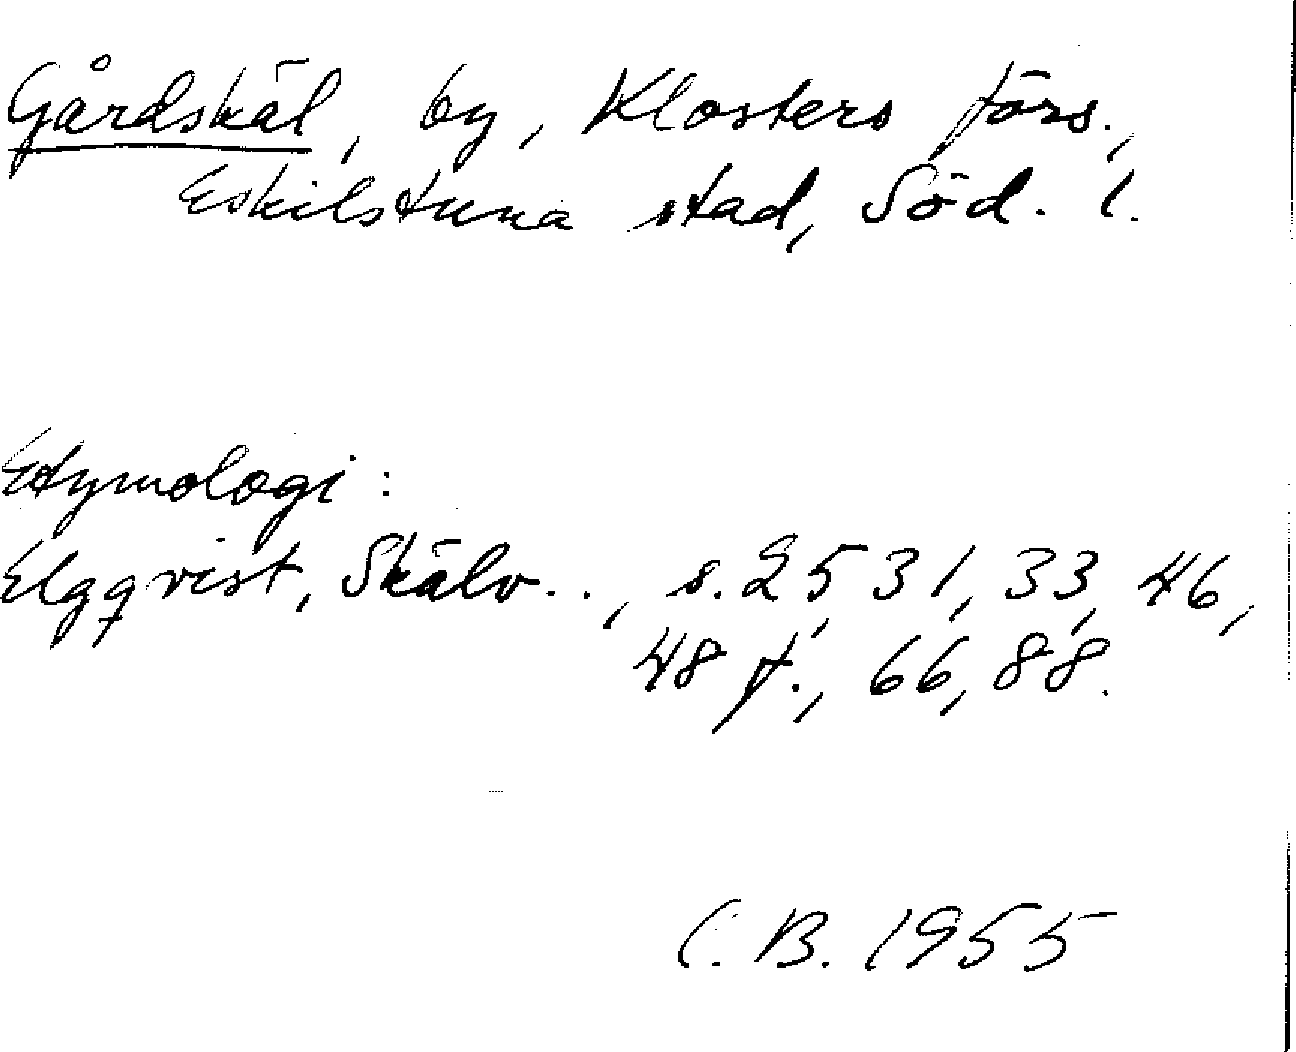 Gårdskäl, by, Klosters förs.,
Eskilstuna stad, Söd. l.
Etymologi:
Elgqvist, Skälv.., s. 25, 31, 33, 46,
48 f., 66, 88.
C. B. 1955